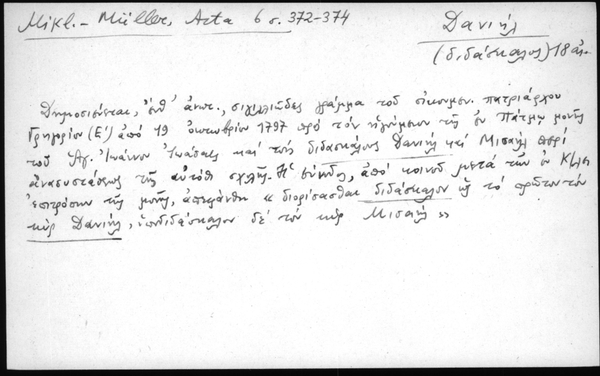 Mikl. - Müller, Acta 6 σ. 372-374
Δανιήλ
(διδάσκαλος) 18 αἰ.
Δημοσιεύεται, ἔνθ' ἀνωτ., σιγιλλιῶδες γράμμα τοῦ οἰκουμεν. πατριάρχου
Γρηγορίου (Ε') ἀπό 19 ὀκτωβρίου 1797 πρό τόν ἡγούμενον τῆς ἐν Πάτμῳ μονῆς
τοῦ Ἁγ. Ἰωάννου καί τούς διδασκάλους Δανιήλ καί Μισαήλ περί
ἀνασυστάσεως τῆς αὐτόθι σχολῆς. Ἡ σύνοδος, ἀπό κοινοῦ μετά τῶν ἐν Κ/πει
ἐπιτρόπων τῆς μονῆς, ἀπεφάνθη « διορίσασθαι διδάσκαλον τό πρῶτον τόν
κύρ Δανιήλ, ὑποδιδάσκαλον δέ τόν κύρ Μισαήλ »